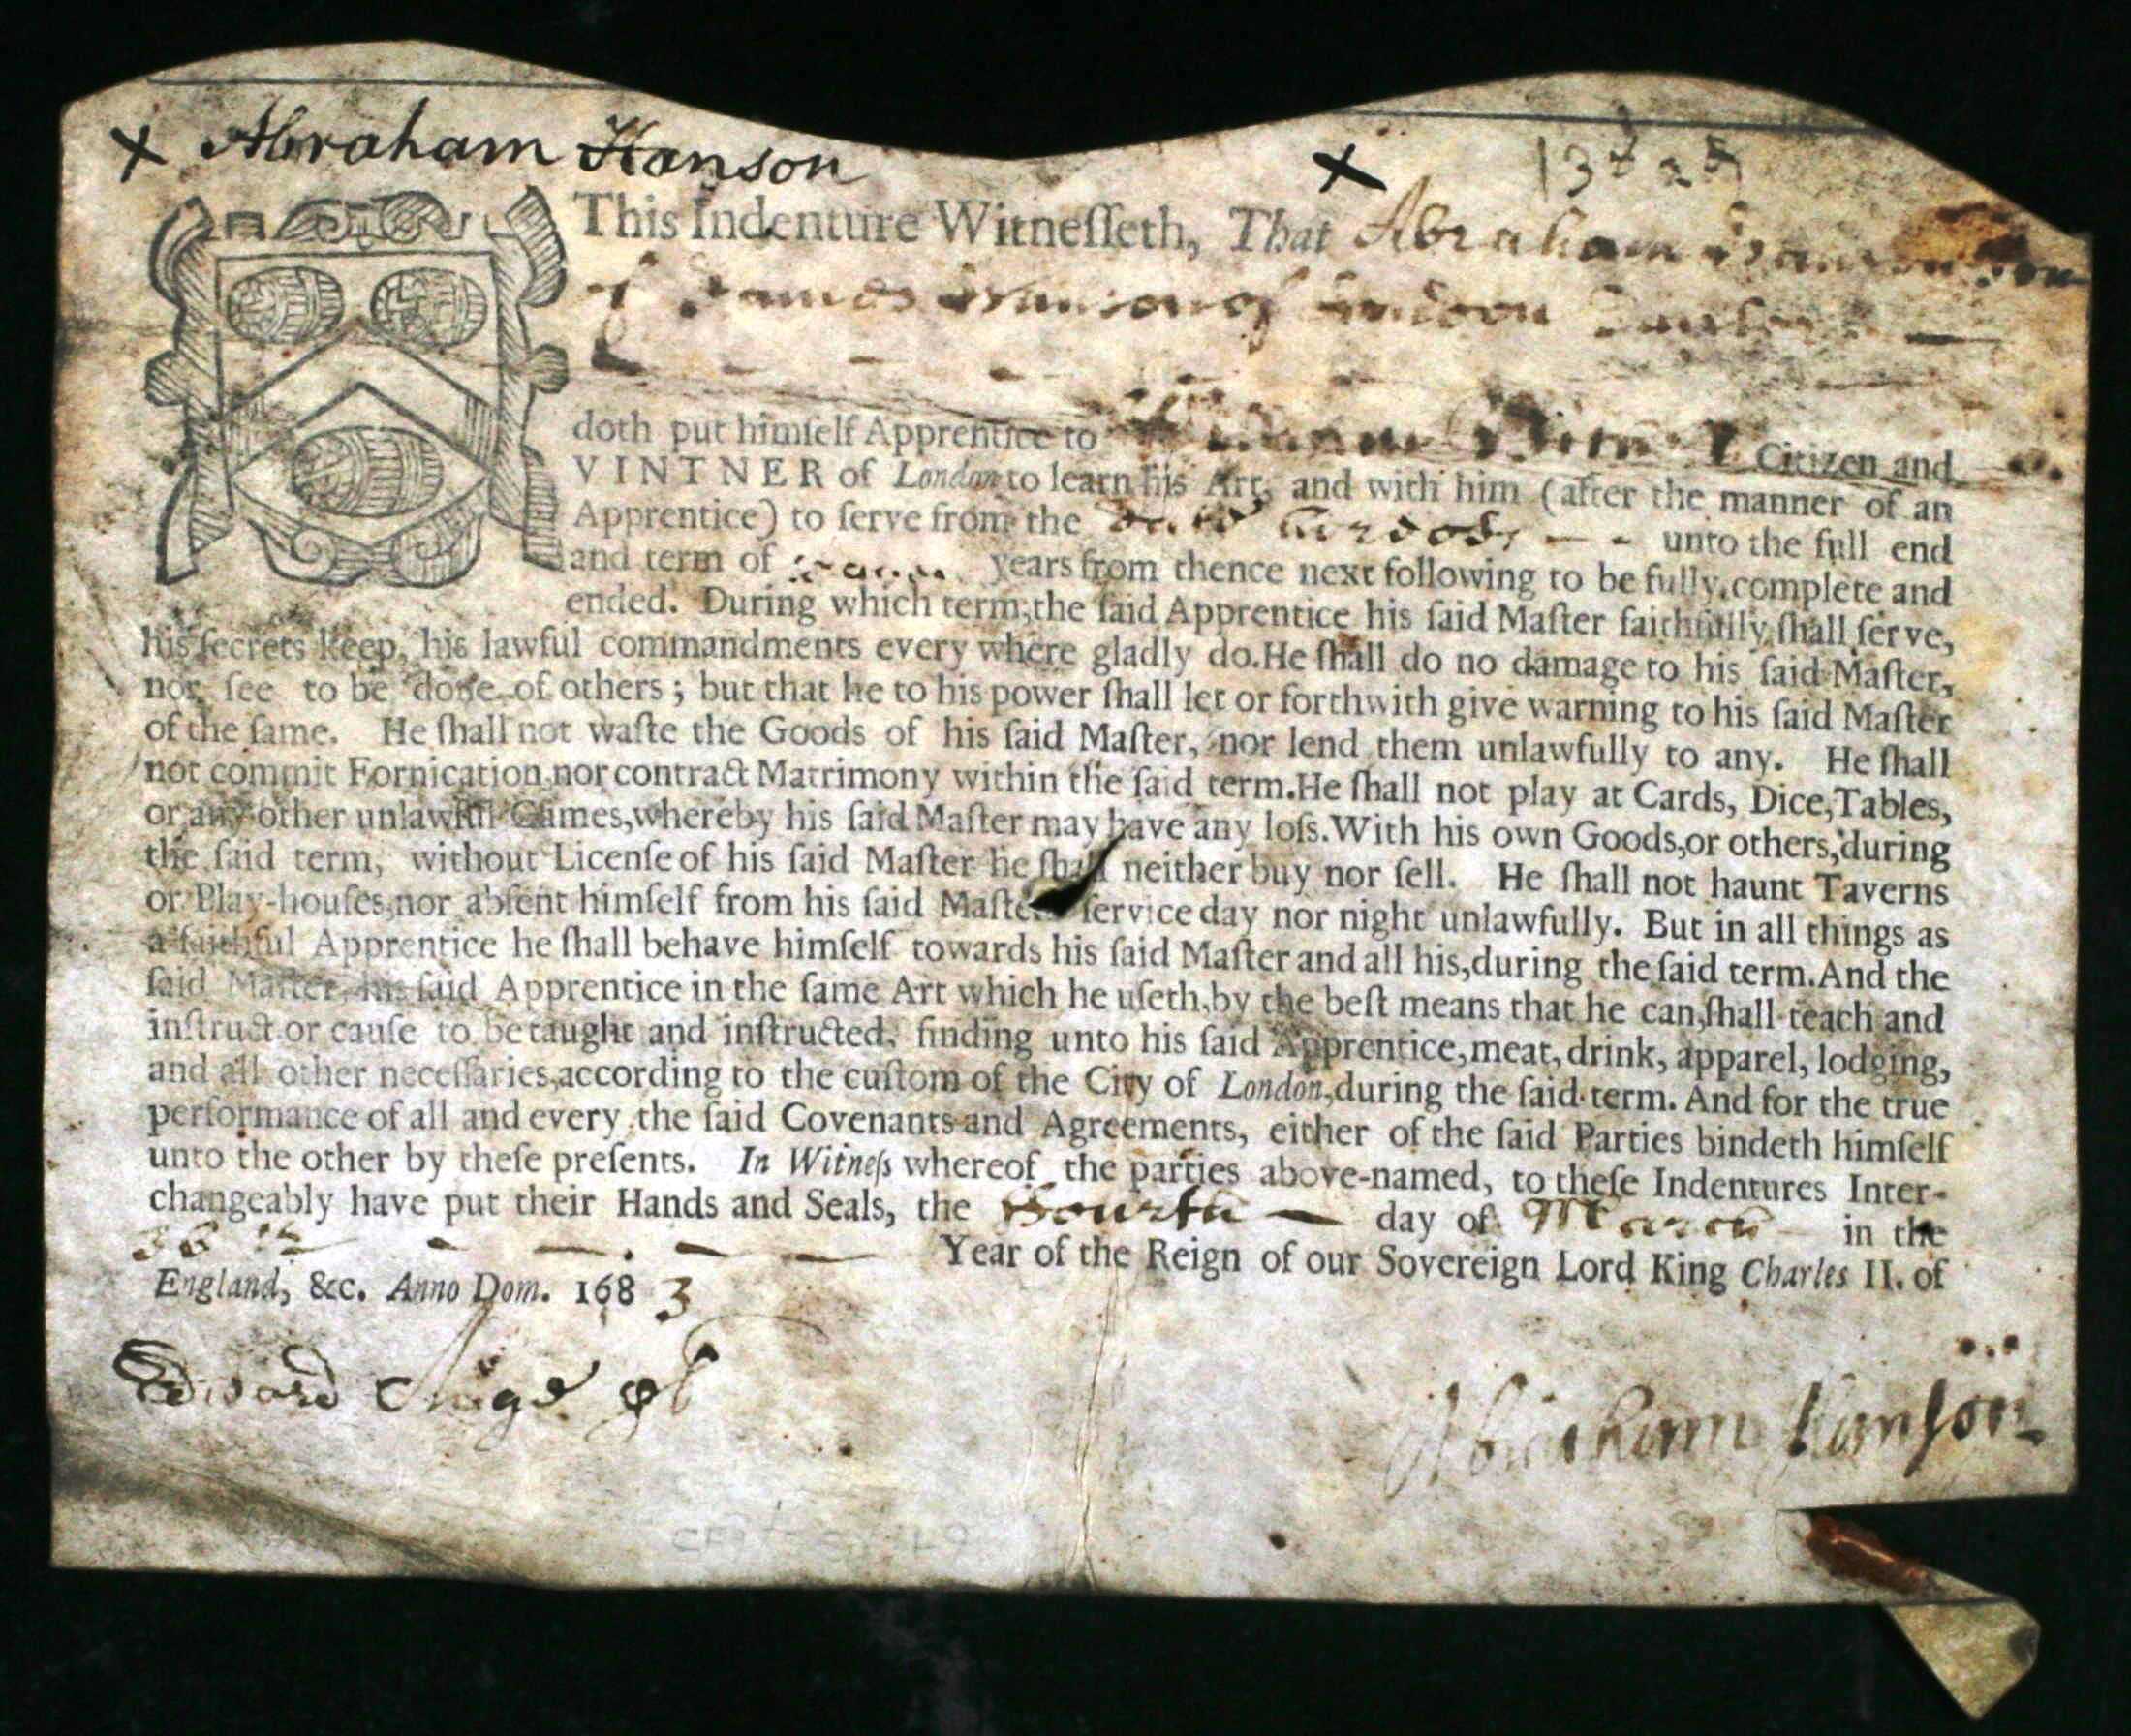 x Abraham Hanson
x
This Indenture Witneſſeth, That Abraham Hanson Son
of James Hanson of London
doth put himſelf Apprentice to Citizen and
VINTNER of London to learn his Art, and with him (after the manner of an
Apprentice) to ſerve from the unto the full end
and term of years from thence next following to be fully complete and
ended. During which term, the ſaid Apprentice his ſaid Maſter faithfully ſhall ſerve,
his ſecrets keep, his lawful commandments every where gladly do. He ſhall do no damage to his ſaid Maſter,
nor ſee to be done of others; but that he to his power ſhall let or forthwith give warning to his ſaid Maſter
of the ſame. He ſhall not waſte the Goods of his ſaid Maſter, nor lend them unlawfully to any. He ſhall
not commit Fornication, nor contract Matrimony within the ſaid term. He ſhall not play at Cards, Dice, Tables,
or any other unlawful Games, whereby his ſaid Maſter may have any loſs. With his own Goods, or others, during
the ſaid term, without Licenſe of his ſaid Maſter he ſhall neither buy nor ſell. He ſhall not haunt Taverns
or Play-houſes, nor abſent himſelf from his ſaid Maſters ſervice day nor night unlawfully. But in all things as
a faithful Apprentice he ſhall behave himſelf towards his ſaid Maſter and all his, during the ſaid term. And the
ſaid Maſter his ſaid Apprentice in the ſame Art which he uſeth, by the beſt means that he can, ſhall teach and
inſtruct or cauſe to be taught and inſtructed, finding unto his ſaid Apprentice, meat, drink, apparel, lodging,
and all other neceſſaries, according to the cuſtom of the City of London, during the ſaid term. And for the true
performance of all and every the ſaid Covenants and Agreements, either of the ſaid Parties bindeth himſelf
unto the other by theſe preſents. In Witneſs whereof the parties above-named, to theſe Indentures Inter-
changeably have put their Hands and Seals, the Fourth day of March in the
36th Year of the Reign of our Sovereign Lord King Charles II. of
England, &c. Anno Dom. 1683
Edward
Abraham Hanſon